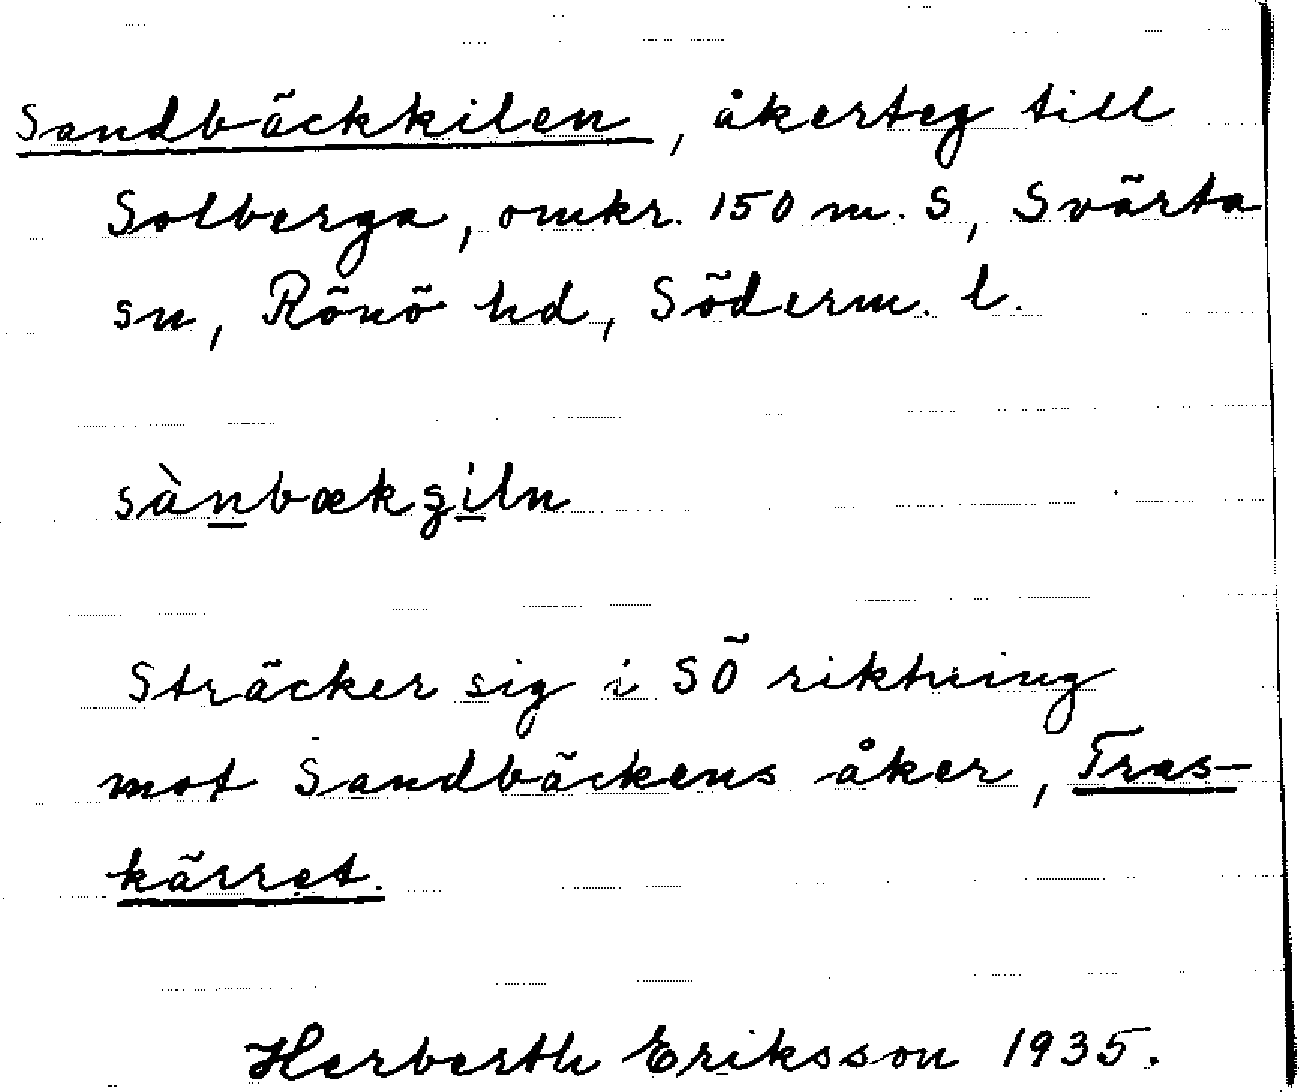 Sandbäckkilen, åkerteg till
Solberga, omkr. 150 m. S, Svärta
sn, Rönö hd, Söderm. l.
Sträcker sig i SÖ riktning
mot Sandbäckens åker, Tras-
kärret.
Herberth Eriksson 1935.